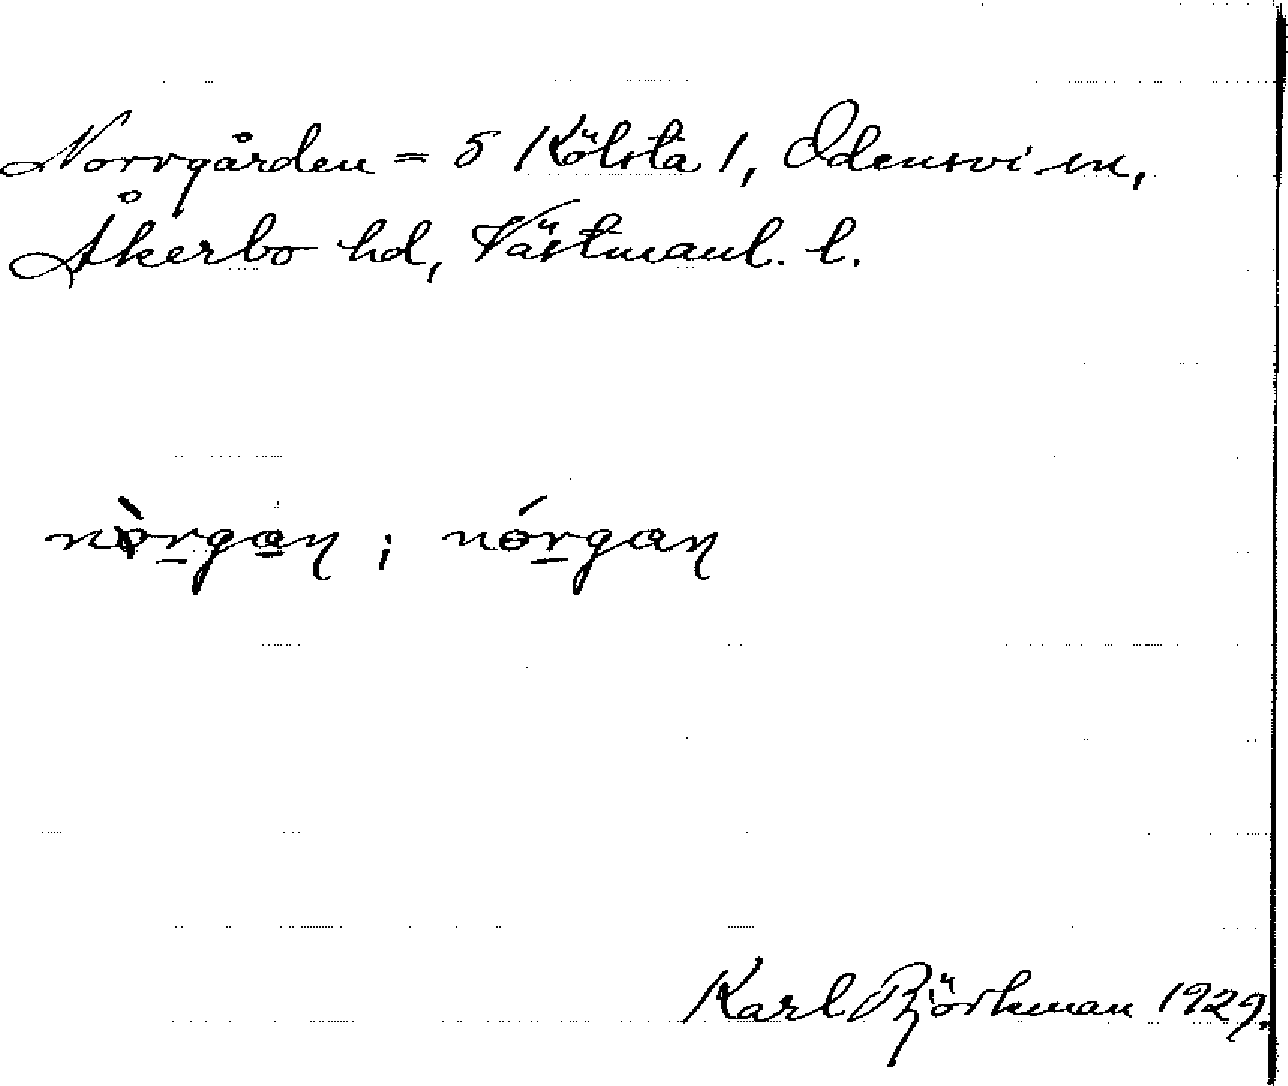 Norrgården = 5 Kölsta 1, Odensvi sn,
Åkerbo hd, Västmanl. l.
nòrgan ; nórgan
Karl Björkman 1929.